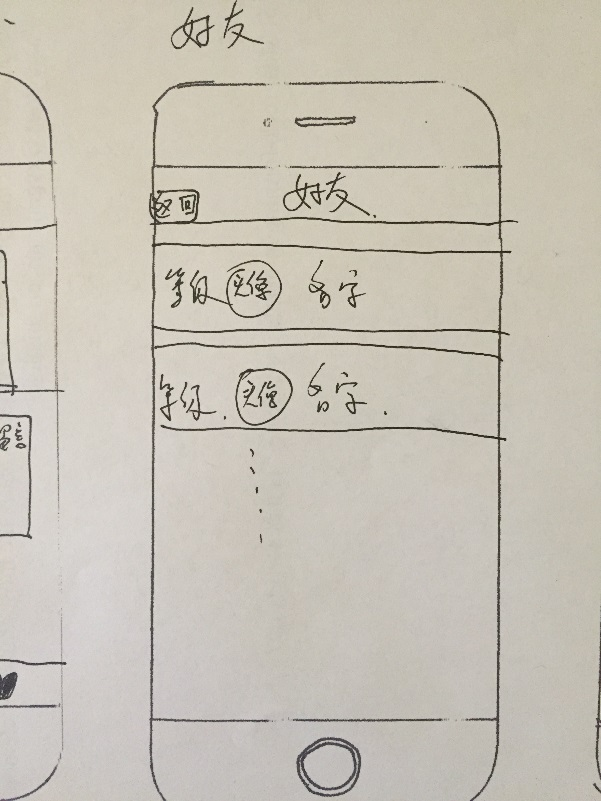 好友
返回 好友
等级 头像 名字
等级 头像 名字